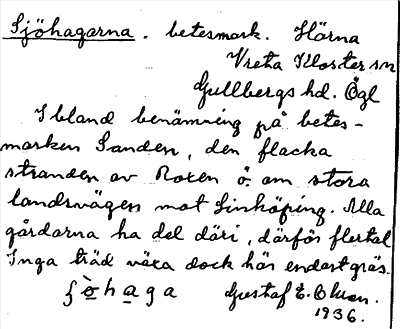 Sjöhagarna. betesmark. Hörna
Vreta Kloster sn
Gullbergs hd. Ögl
Ibland benämning på betes-
marken Sanden, den flacka
stranden av Roxen ö. om stora
landsvägen mot Linköping. Alla
gårdarna ha del däri, därför flertal
Inga träd växa dock här endast gräs.
ʃò̤haga Gustaf E. Olson.
1936.